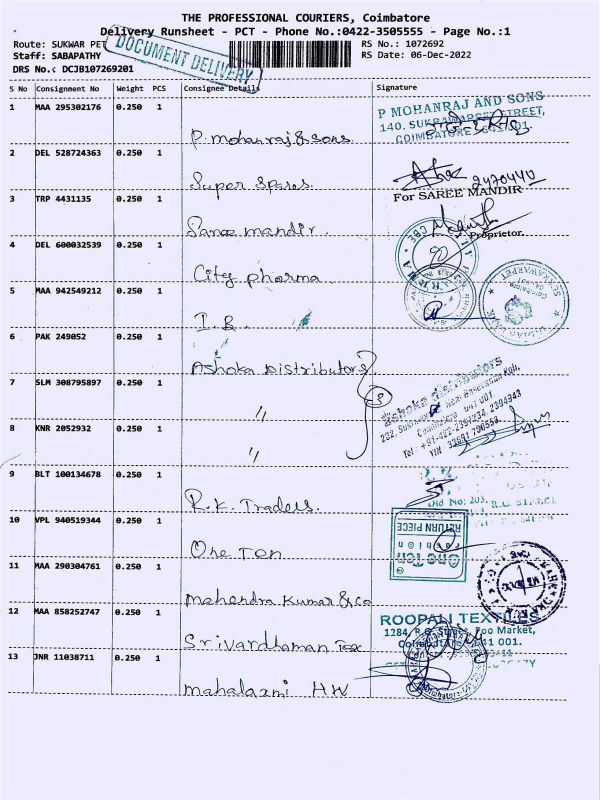 THE PROFESSIONAL COURIERS, Coimbatore
Delivery Runsheet - PCT - Phone No.:0422-3505555 - Page No.:1
Route: SUKWAR PET
RS No.: 1072692
Staff: SABAPATHY
RS Date: 06-Dec-2022
DRS No.: DCJB107269201
DOCUMENT DELIVERY
S No Consignment No Weight PCS Consignee Details Signature
1 MAA 295302176 0.250 1
P. mohanraj & sons
P MOHANRAJ AND SONS
2 DEL 528724363 0.250 1
Super Spares
3 TRP 4431135 0.250 1
For SAREE MANDIR
Saree mandir.
Proprietor.
4 DEL 600032539 0.250 1
City pharma
5 MAA 942549212 0.250 1
I.B.
6 PAK 249052 0.250 1
Ashoka Distributors
7 SLM 308795897 0.250 1
"
8 KNR 2052932 0.250 1
"
9 BLT 100134678 0.250 1
R.K. Traders
10 VPL 940519344 0.250 1
RETURN PIECE
One Ten
One Ten
11 MAA 290304761 0.250 1
Mahendra Kumar & Co
12 MAA 858252747 0.250 1
ROOPALI TEXTILE
Srivardhaman Tex
13 JNR 11038711 0.250 1
mahalaxmi HW